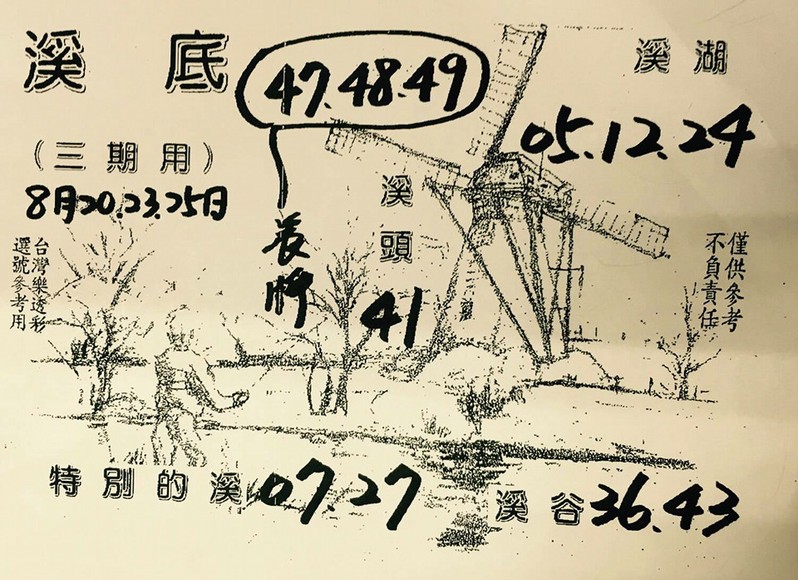 溪底
47.48.49
溪湖
05.12.24
(三期用)
8月20.23.25日
長牌
溪頭
41
台灣樂透彩
選號參考用
僅供參考
不負責任
特別的溪07.27
溪谷36.43